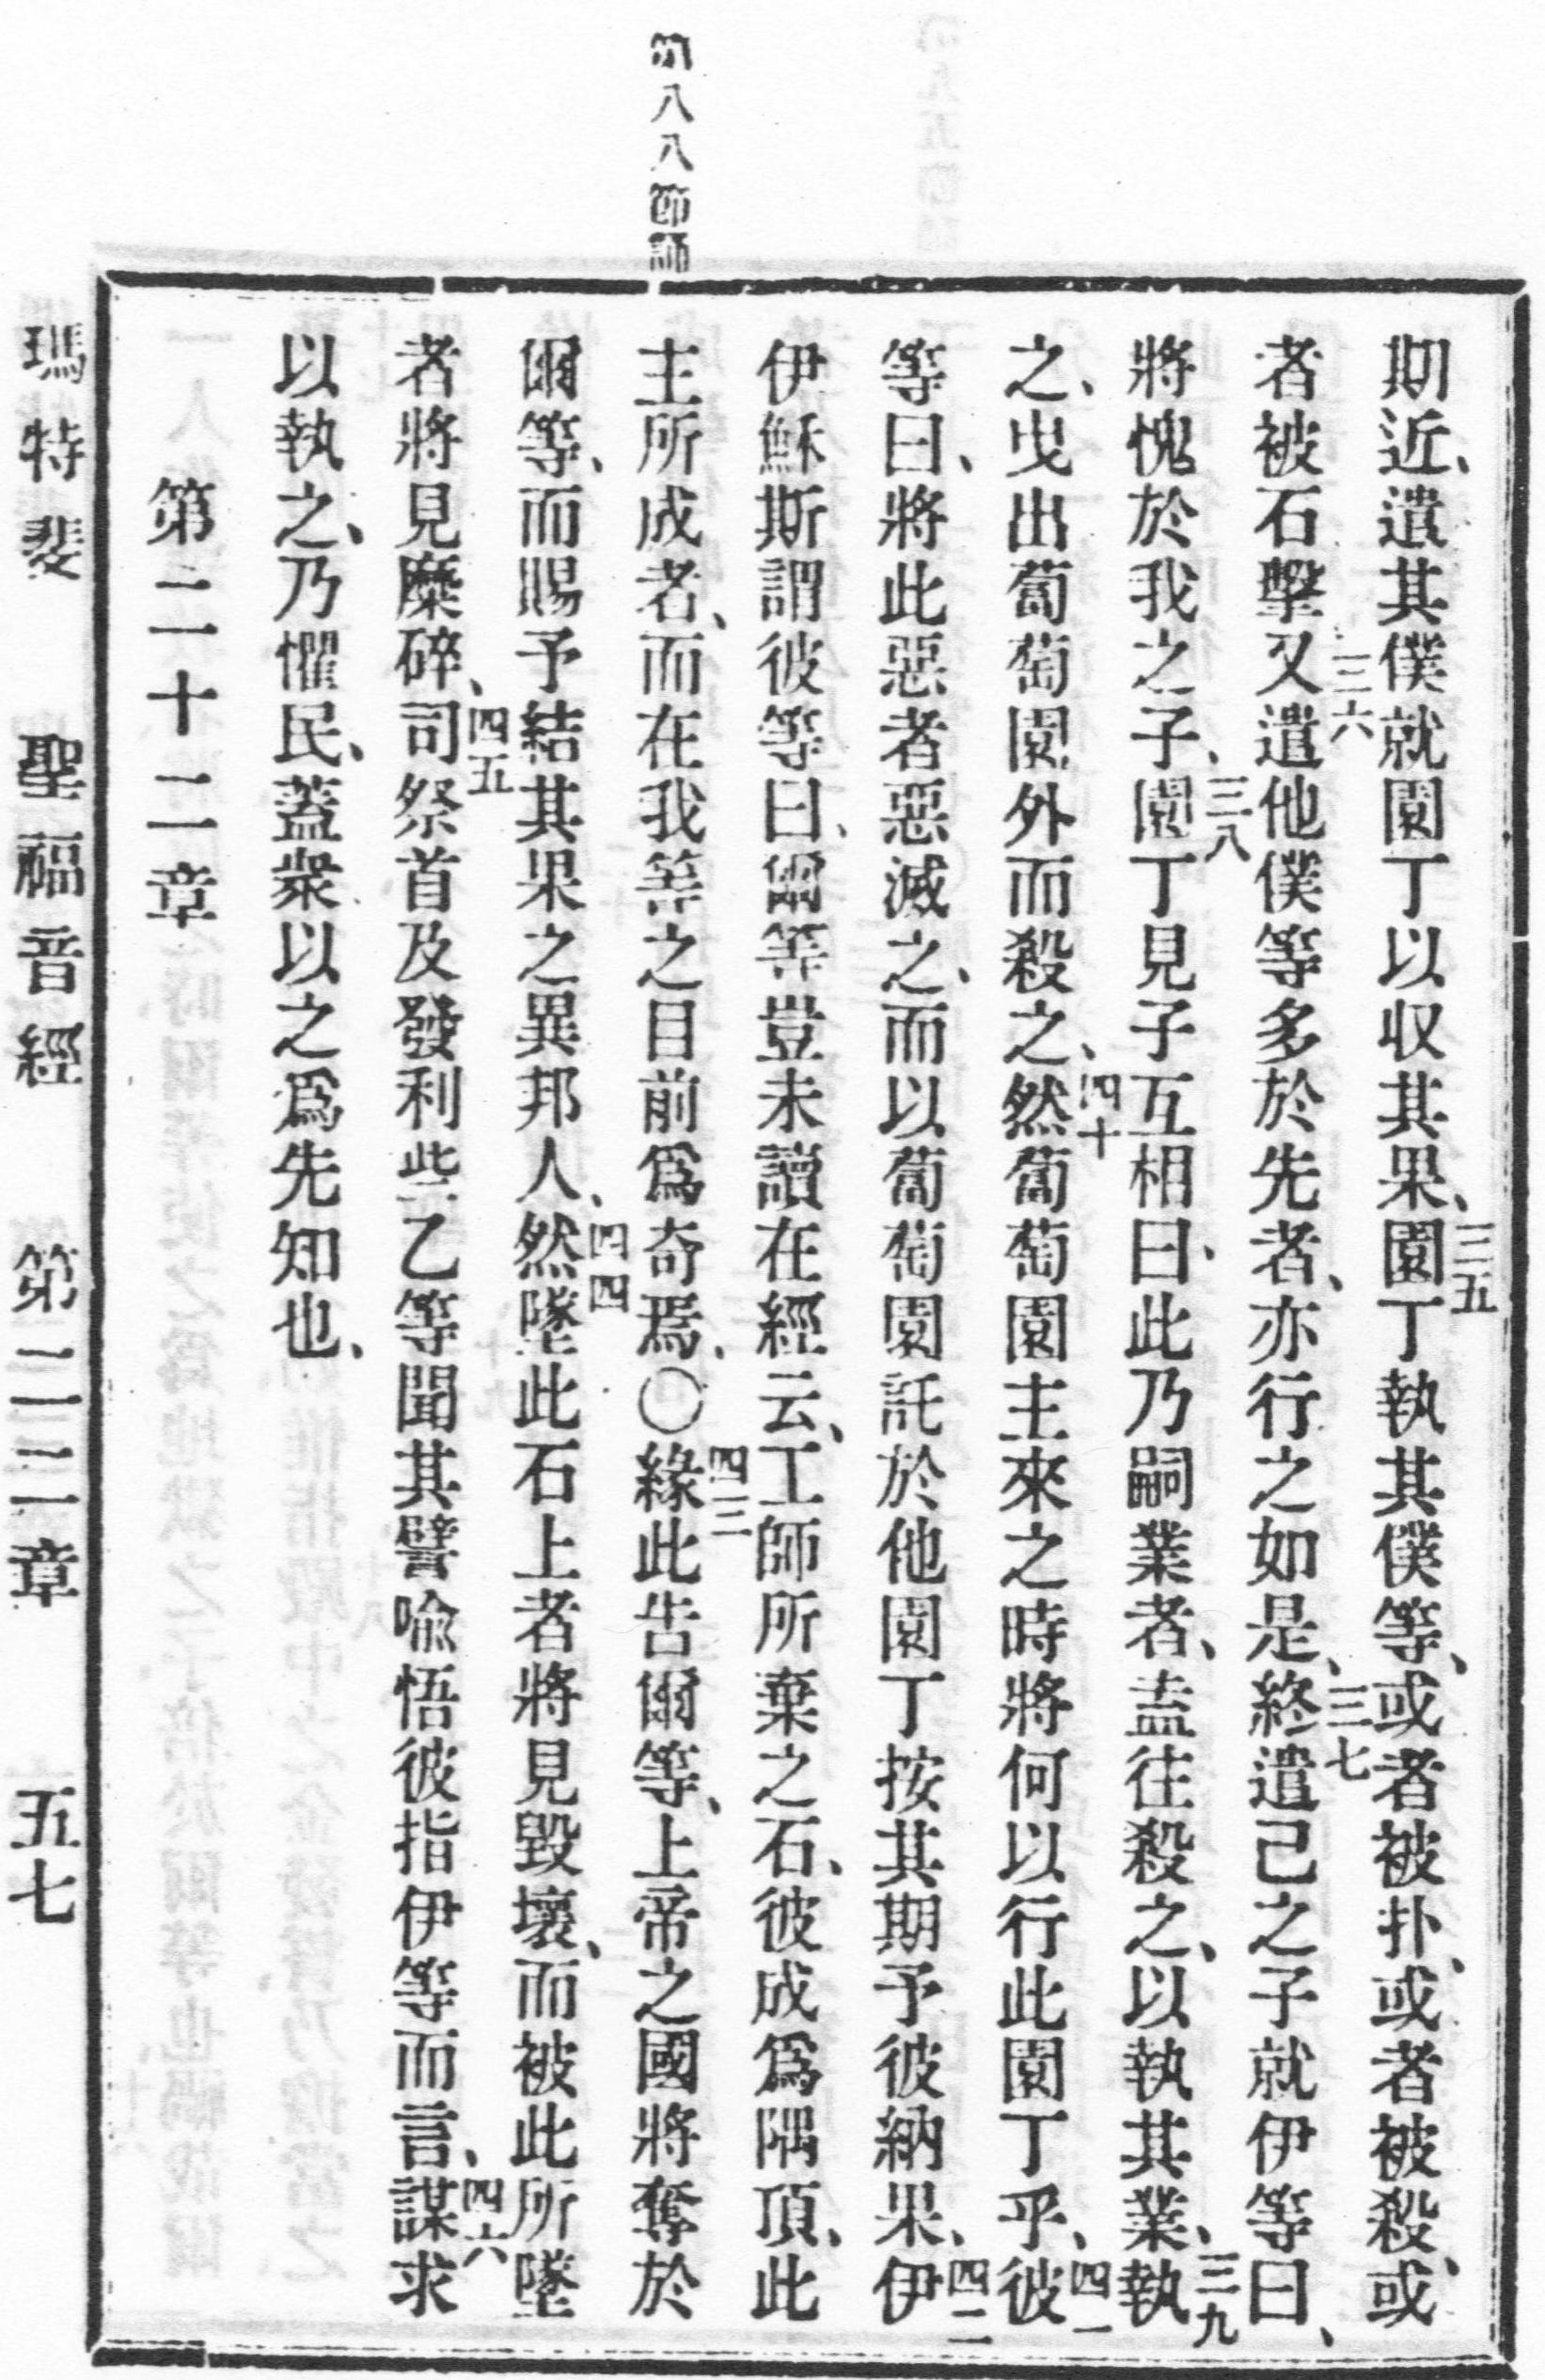 第八八節
期近、遣其僕就園丁以収其果、三五園丁執其僕等、或者被扑、或者被殺、或
者被石擊三六又遣他僕等多於先者、亦行之如是、三七終遣己之子就伊等曰、
將愧於我之子、三八園丁見子互相曰、此乃嗣業者、盍往殺之、以執其業、三九執
之、曳出葡萄園外而殺之、四十然葡萄園主來之時將何以行此園丁乎、四一彼
等曰、將此惡者惡滅之、而以葡萄園託於他園丁按其期予彼納果、四二伊
伊穌斯謂彼等曰、爾等豈未讀在經云、工師所棄之石、彼成爲隅頂、此
主所成者、而在我等之目前爲奇焉、〇四三緣此告爾等、上帝之國將奪於
爾等、而賜予結其果之異邦人、四四然墜此石上者將見毀壞、而被此所墜
者將見糜碎、四五司祭首及發利些乙等聞其譬喩悟彼指伊等而言、四六謀求
以執之、乃懼民、蓋衆以之爲先知也、
第二十二章
瑪特斐 聖福音經 第二二章 五七